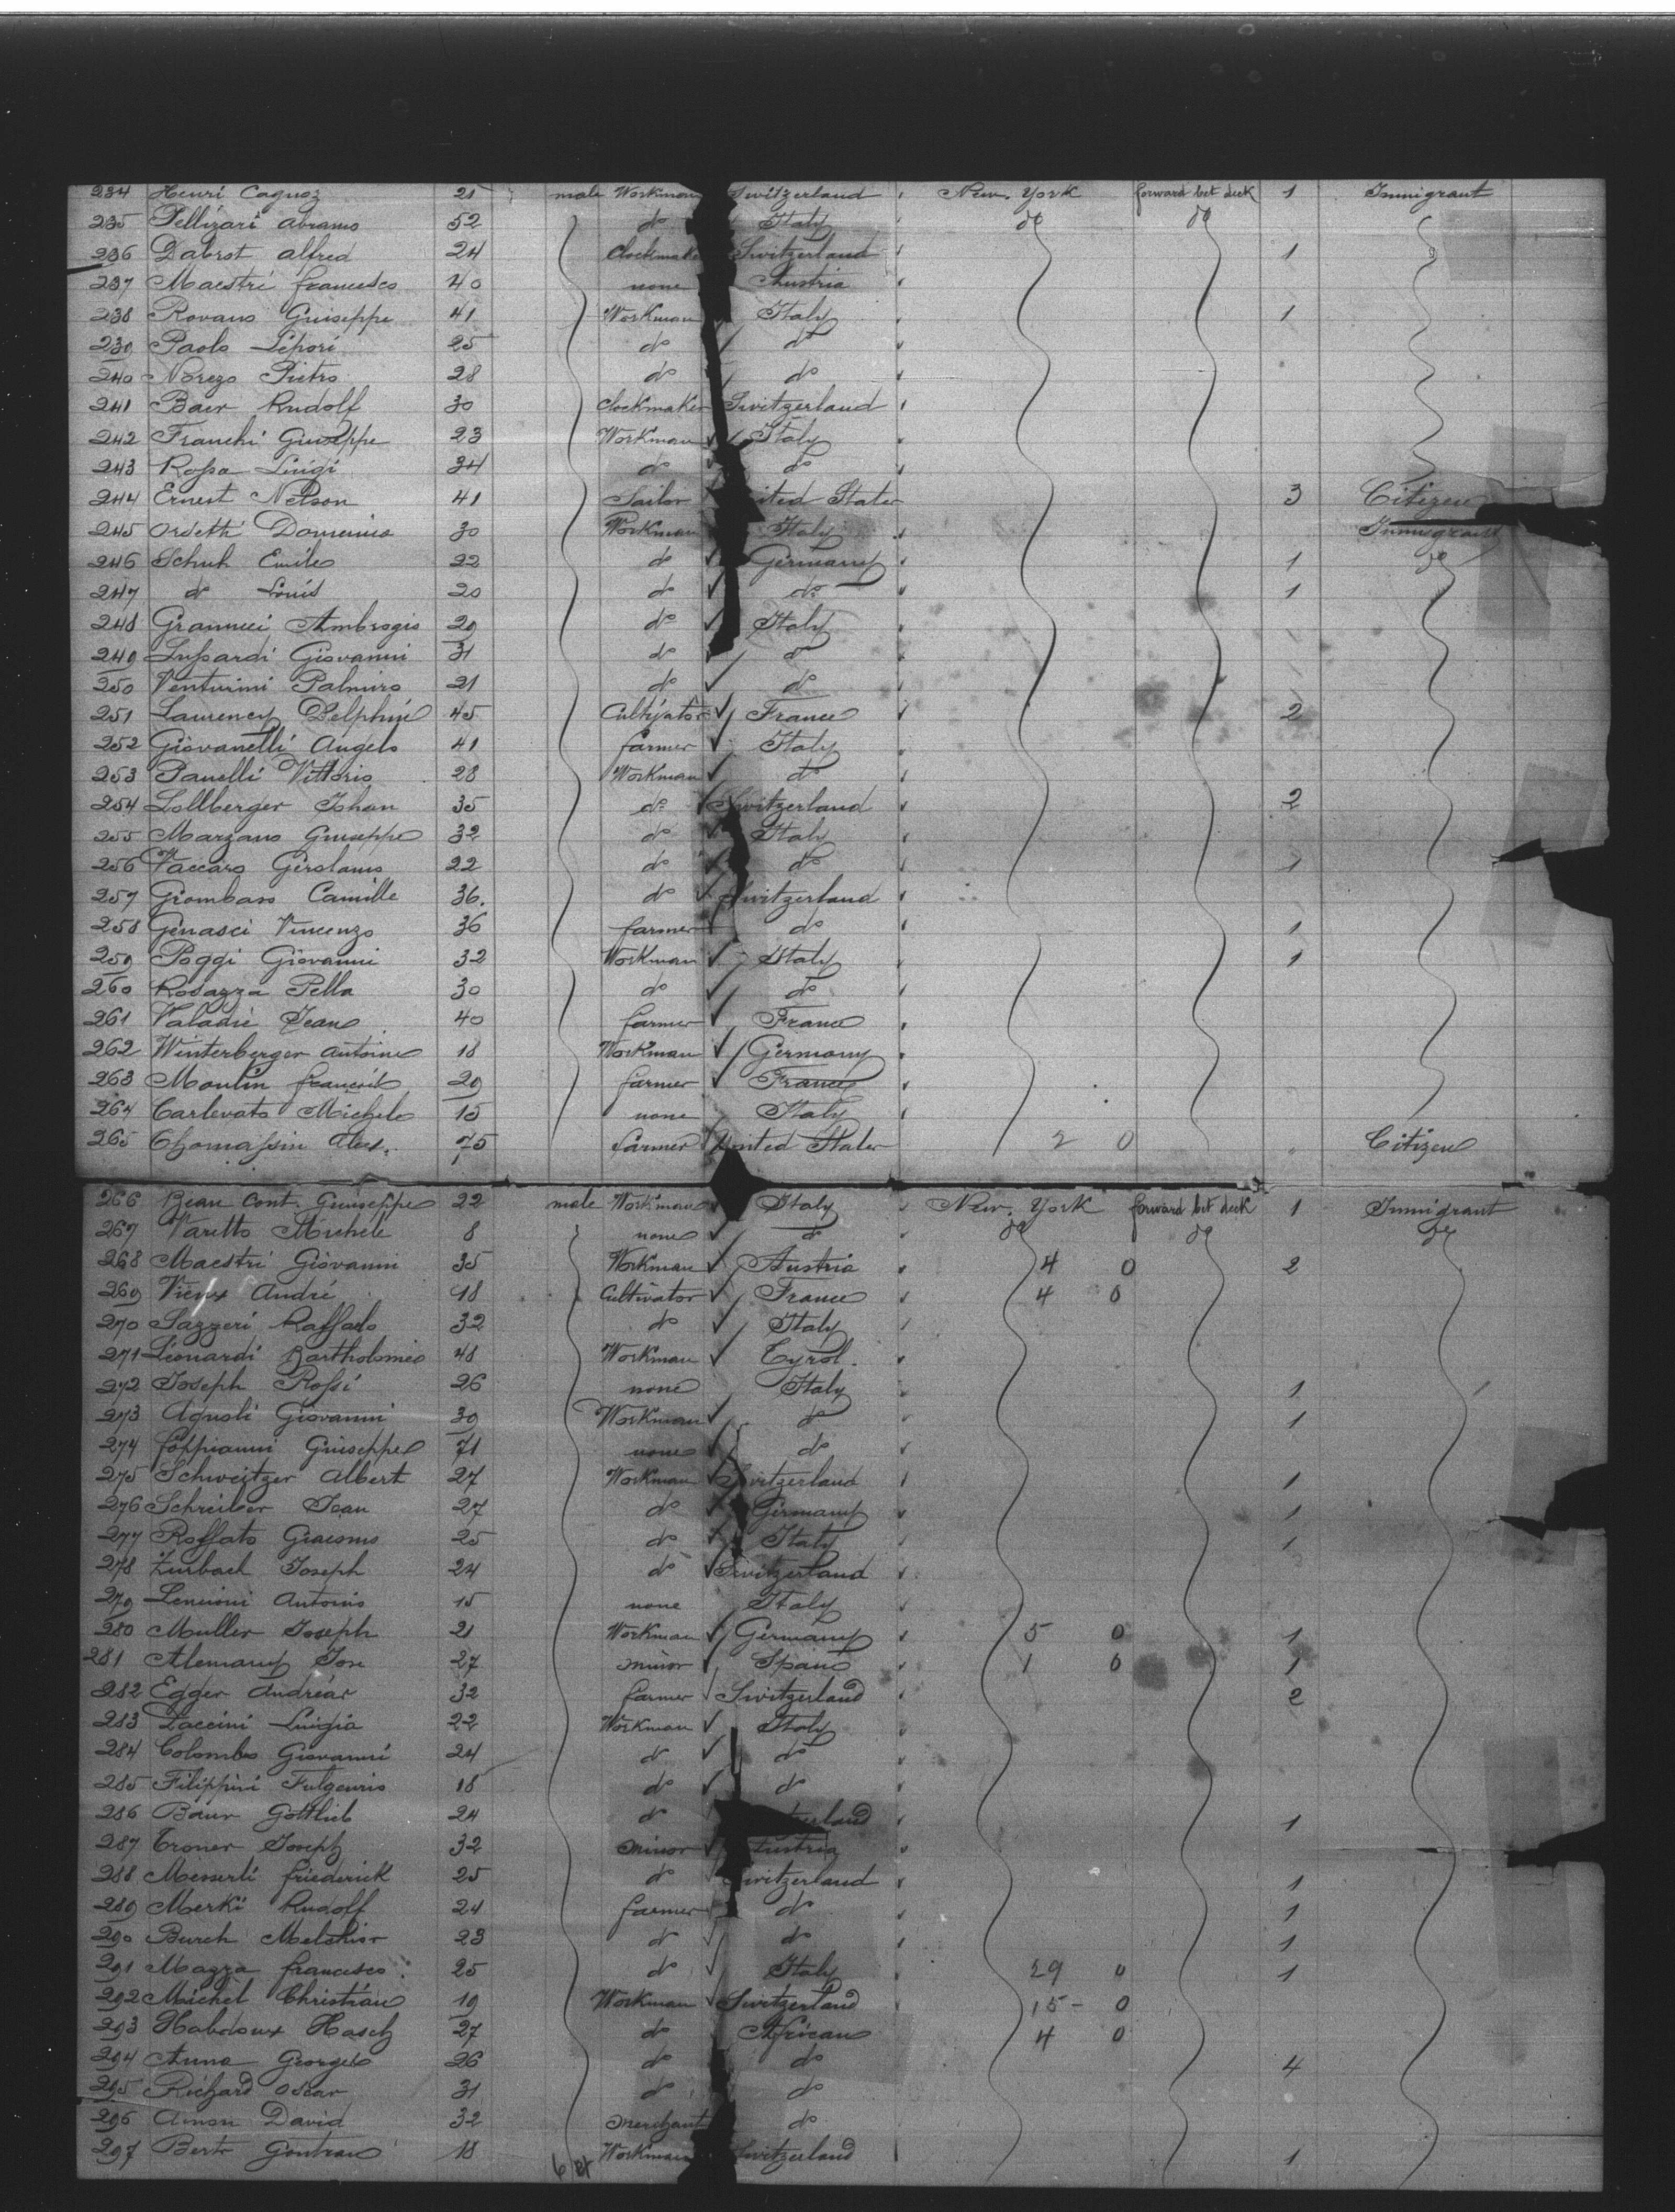 234 Henri Cagnoz 21 male Workman Switzerland New. York forward bet deck 1 Immigrant
235 Pellizari Abramo 52 do Italy do do
236 Dabrot Alfred 24 Clockmaker Switzerland 1
237 Maestri francesco 40 none Austria
238 Rovano Guiseppe 41 Workman Italy 1
239 Paolo Lepori 25 do do
240 Norezo Pietro 28 do do
241 Baer Rudolf 30 Clockmaker Switzerland
242 Franchi Giuseppe 23 Workman Italy
243 Rossa Luigi 34 do do
244 Ernest Nelson 41 Sailor ited States 3 Citizen
245 Orsetti Domenico 30 Workman Italy Immigrant
246 Schuh Emile 22 do Germany 1 do
247 do Louis 20 do do 1
248 Grannuci Ambrogio 29 do Italy
249 Lussardi Giovanni 31 do do
250 Venturini Palmiro 21 do do
251 Laurency Delphin 45 Cultivator France 2
252 Giovanelli Angelo 41 farmer Italy
253 Panelli Vittorio 28 Workman do
254 Lollberger Johan 35 do Switzerland 2
255 Marzano Giuseppe 32 do Italy
256 Vaccaro Girolamo 22 do do 1
257 Giombaro Camille 36. do Switzerland
258 Genasci Vincenzo 36 farmer do 1
259 Poggi Giovanni 32 Workman Italy 1
260 Rosazza Pella 30 do do
261 Valadié Jean 40 farmer France
262 Winterberger Antoine 18 Workman Germany
263 Moulin françois 29 farmer France
264 Carlevato Michele 15 none Italy
265 Thomassin Alex. 75 farmer United States 2 0 Citizen
266 Bean Cont. Guiseppe 22 male Workman Italy New. York forward bet deck 1 Immigrant
267 Varetto Michele 8 none do do do do
268 Maestri Giovanni 35 Workman Austria 4 0 2
269 Vieux André 18 Cultivator France 4 0
270 Sazzeri Raffaelo 32 do Italy
271 Léonardi Bartholomeo 48 Workman Tyrol.
272 Joseph Rossi 26 none Italy 1
273 Agnoli Giovanni 39 Workman do 1
274 foppianni Guiseppe 71 none do
275 Schweitzer Albert 27 Workman Switzerland 1
276 Schreiber Jean 27 do Germany 1
277 Roffato Giacomo 25 do Italy 1
278 Zurbach Joseph 24 do Switzerland
279 Lencioni Antonio 15 none Italy
280 Muller Joseph 21 Workman Germany 5 0 1
281 Alemany Jose 27 minor Spain 1 0 1
282 Egger Andréas 32 farmer Switzerland 2
283 Zaccini Luigia 22 Workman Italy
284 Colombo Giovanni 24 do do
285 Filippini Fulgencio 18 do do
286 Baur Gottlieb 24 do erland 1
287 Troner Joseph 32 minor Austria
288 Messerli friederick 25 do Switzerland 1
289 Merki Rudolf 24 farmer do 1
290 Burch Melchior 23 do do 1
291 Mazza francesco. 25 do Italy 29 0 1
292 Michel Christian 19 Workman Switzerland 15- 0
293 Habdoux Hasch 27 do African 4 0
294 Anna Georges 26 do do 4
295 Richard Oscar 31 do do
296 Amon David 32 merchant do
297 Bertr Gontran 18 Workman Switzerland 1